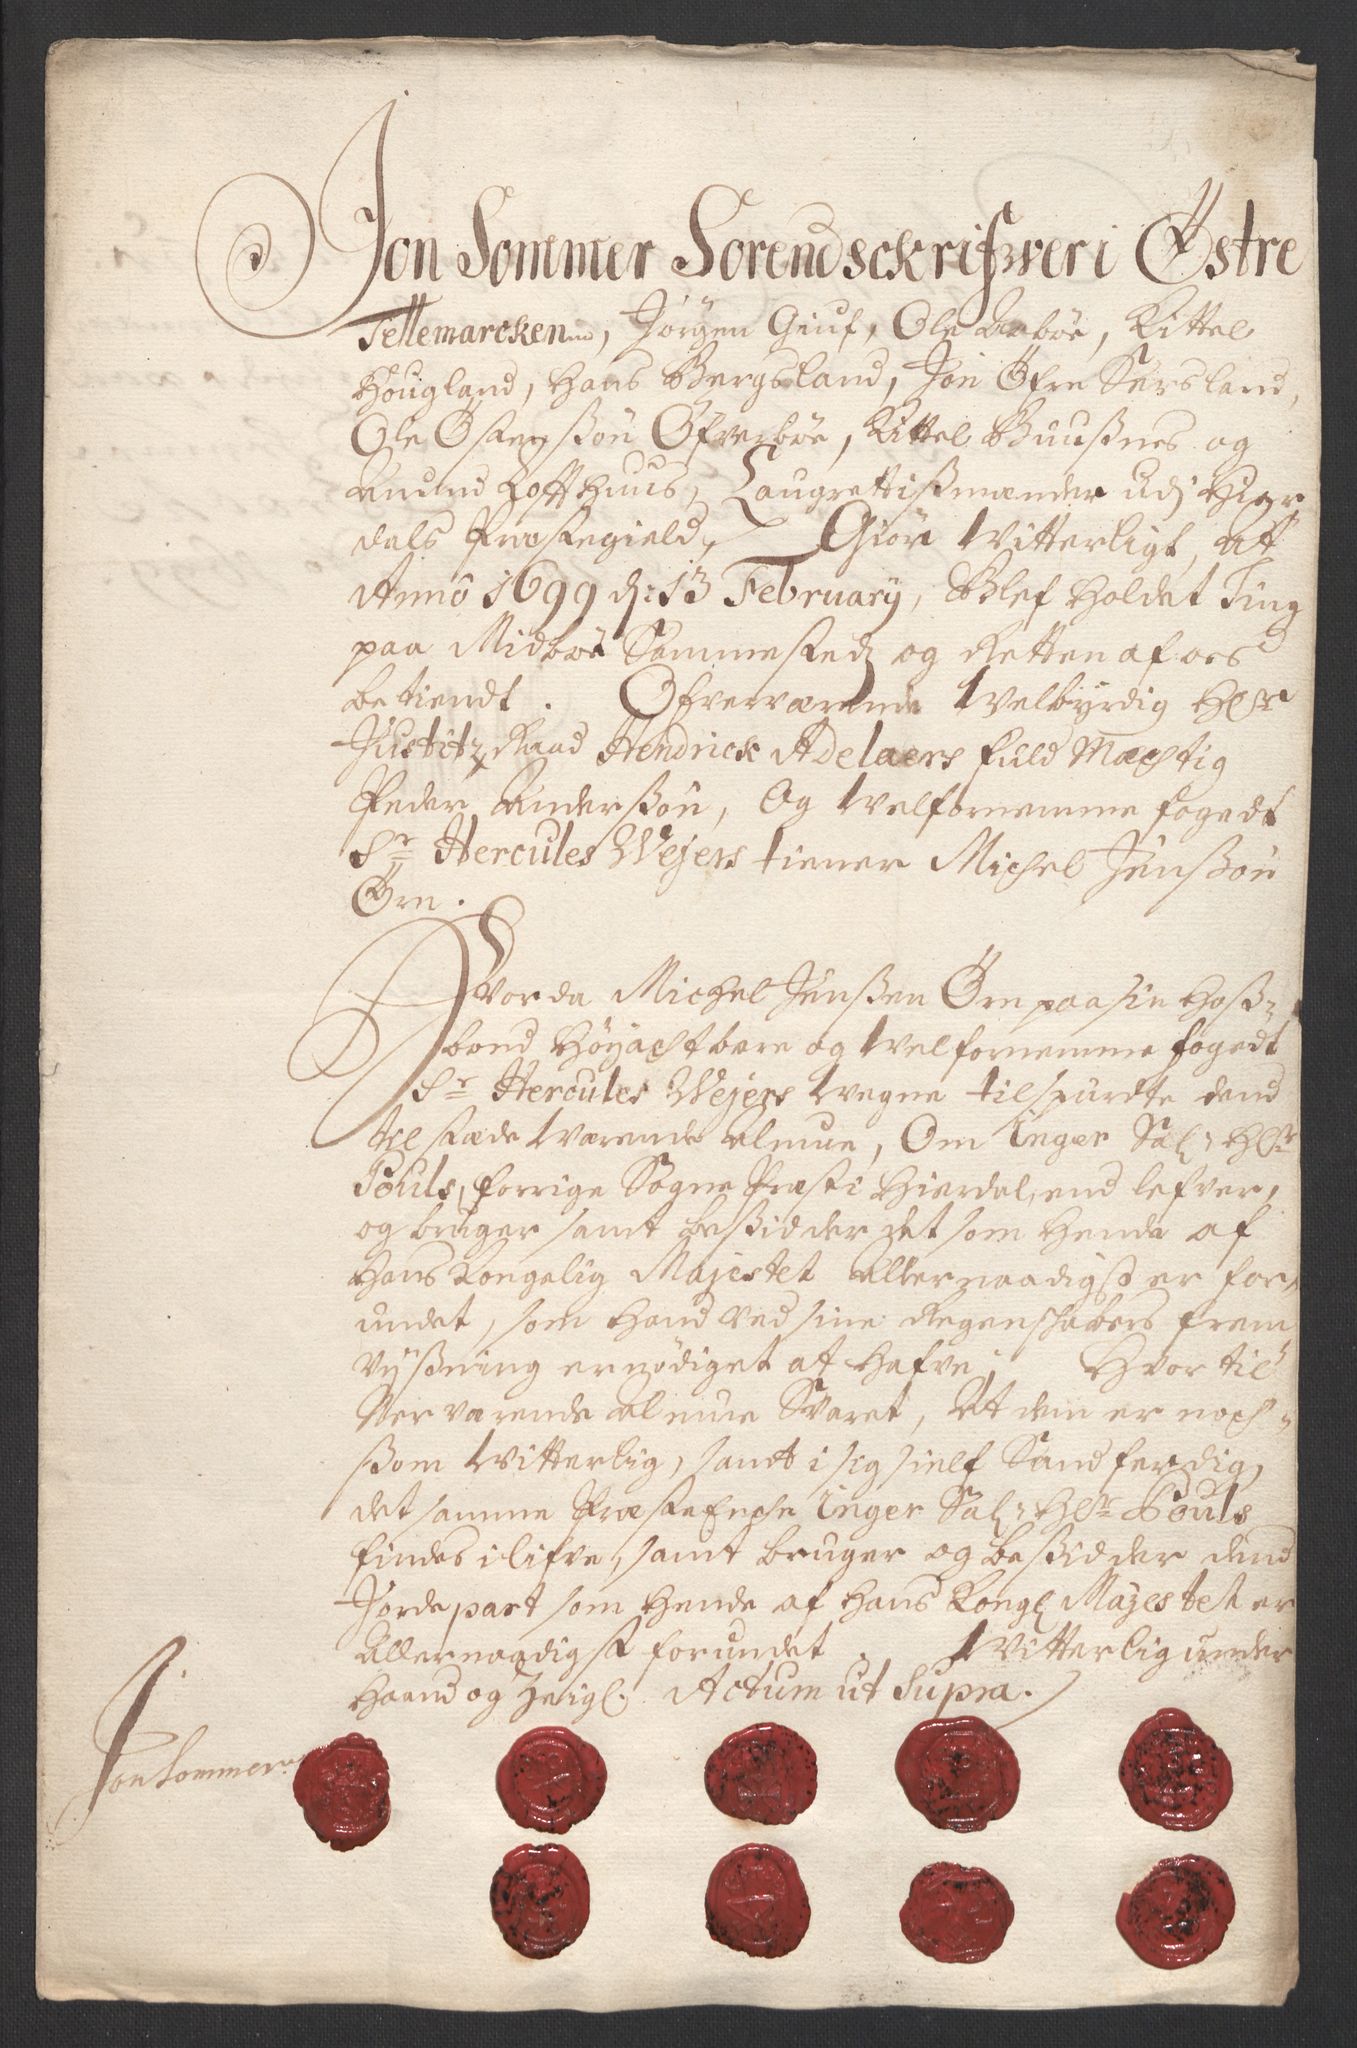 Jon Sommer Sorendsckrifwer i Østre
Tellemarcken, Jörgen Giuf, Ole Aabøe, Kittel
Hougland, Hans Bergsland, Jon Öfre Sersland,
Ole Östensøn Öfverbøe, Kittel Buusnes og
Anund Loffthuus, Laugrettismænder udj Hier
dals Præstegield, Giör Witterligt, at
Anno 1699 d: 13 February, Blef holdet Ting
paa Midbøe Sammested og Retten af oes
betiendt. Ofverværende Welbyrdig Hr
Justitz Raad Hendrick Adelaers fuld Mægtig
Peder Andersøn, Og Welfornemme fogedt
Sr Hercules Wejers tiener Michel Jensøn
Örn.
Hvor da Michel Jenssen Örn paa sin Hoß-
bond Höyachtbare og Welfornemme fogedt
Sr Hercules Wejers Wegne tilspurdte dend
tilstæde Warende Almue, Om Inger Sal: Hr
Pouls, forrige Sogne Præst i Hierdal, end lefver,
og bruger samt besidder det som hende af
Hans Kongelig Majestet Allernaadigst er for-
undet, som hand ved sine Regenskabers frem
vjsning er nödiget at hafve; Hvor til
Nerværende Almue Svaret, At dem er noch-
som Witterlig, samt i sig sielf Sandferdig,
det samme Præste Enche Inger Sal: Hr Pouls
findes i lifve, samt bruger og besidder dend
Jorde part som hende af Hans Kongl Majestet er
Allernaadigst forundet. Witterlig under
Haand og Zeigl. Actum ut Supra.
Jon Sommer